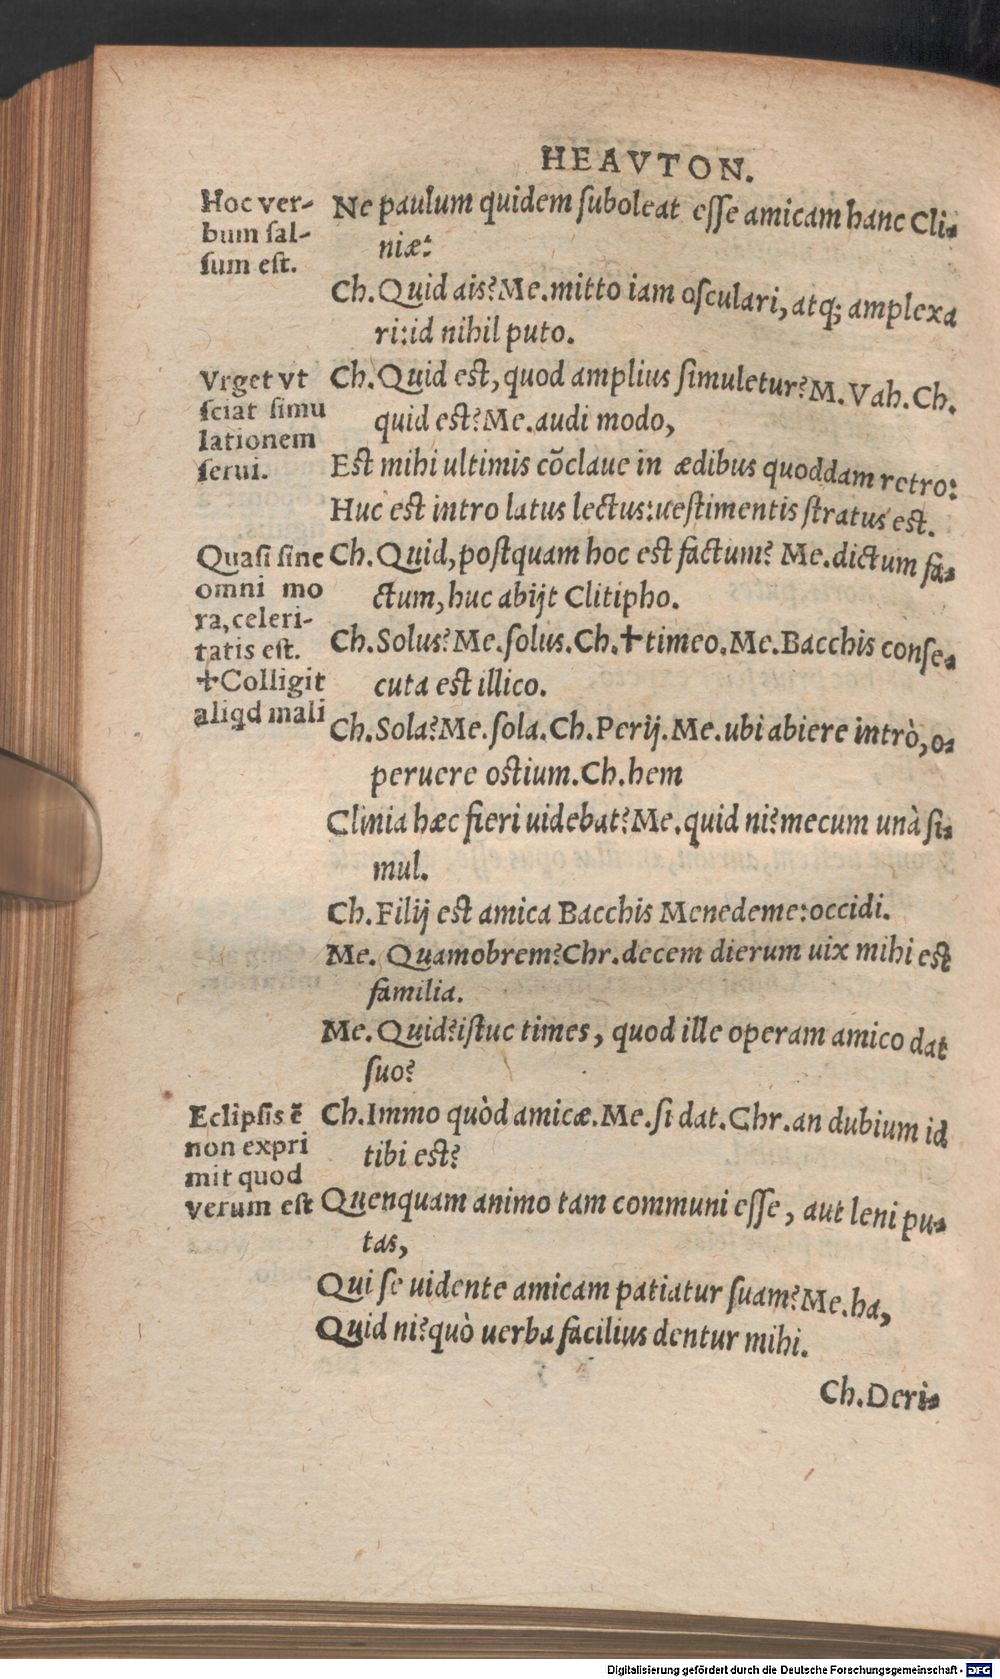 HEAVTON.
Hoc ver-
bum sal-
sum est.
Ne paulum quidem suboleat esse amicam hanc Cli-
niæ:
Ch. Quid ais? Me. mitto iam osculari, atq; amplexa
ri: id nihil puto.
Vrget vt
sciat simu
lationem
serui.
Ch. Quid est, quod amplius simuletur? M. Vah. Ch.
quid est? Me. audi modo,
Est mihi ultimis cõclaue in ædibus quoddam retro:
Huc est intro latus lectus: uestimentis stratus est.
Quasi sine
omni mo
ra, celeri-
tatis est.
✝Colligit
aliqd mali
Ch. Quid, postquam hoc est factum? Me. dictum fa-
ctum, huc abijt Clitipho.
Ch. Solus? Me. solus. Ch. ✝timeo. Me. Bacchis conse-
cuta est illico.
Ch. Sola? Me. sola. Ch. Perij. Me. ubi abiere intrò, o-
peruere ostium. Ch. hem
Clinia hæc fieri uidebat? Me. quid ni? mecum unà si-
mul.
Ch. Filij est amica Bacchis Menedeme: occidi.
Me. Quamobrem? Chr. decem dierum uix mihi est
familia.
Me. Quid? istuc times, quod ille operam amico dat
suo?
Eclipsis ẽ
non expri
mit quod
verum est
Ch. Immo quòd amicæ. Me. si dat. Chr. an dubium id
tibi est?
Quenquam animo tam communi esse, aut leni pu-
tas,
Qui se uidente amicam patiatur suam? Me. ha,
Quid ni? quò uerba facilius dentur mihi.
Ch. Deri-
Digitalisierung gefördert durch die Deutsche Forschungsgemeinschaft - DFG